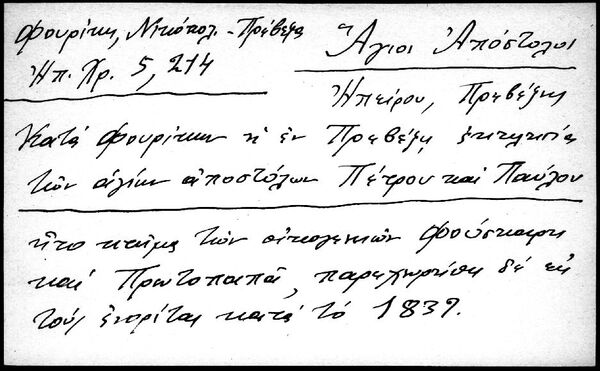 Φουρίκη, Νικόπολ. - Πρέβεζα
Ἠπ. Χρ. 5, 214
Ἅγιοι Ἀπόστολοι
Ἠπείρου, Πρεβέζης
Κατά Φουρίκην ἡ ἐν Πρεβέζῃ ἐκκλησία
τῶν ἁγίων ἀποστόλων Πέτρου καί Παύλου
ἦτο κτῆμα τῶν οἰκογενειῶν Φούσκαρη
καί Πρωτοπαπᾶ, παρεχωρήθη δέ εἰς
τούς ἐνορίτας κατά τό 1839.